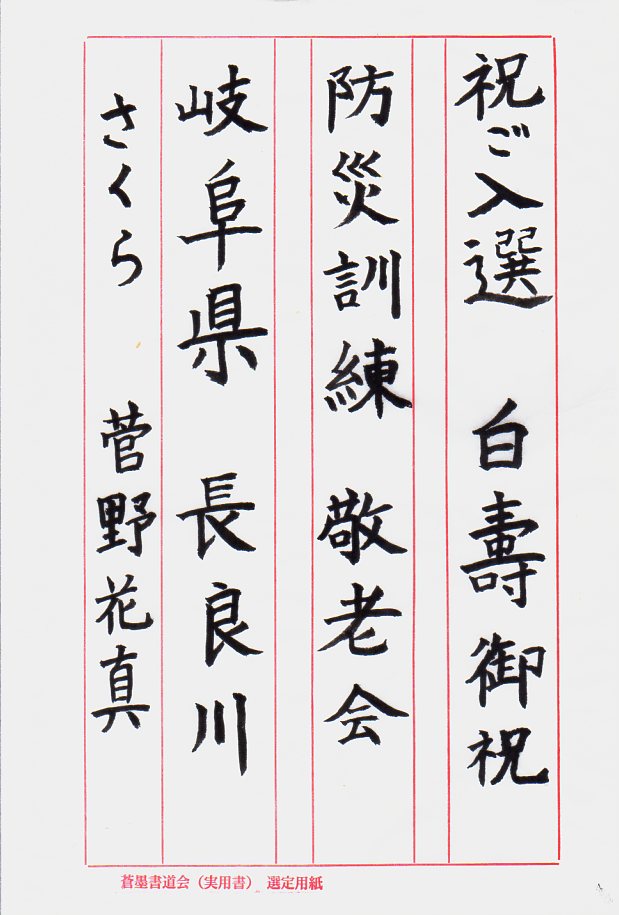 祝ご入選 白壽御祝
防災訓練 敬老会
岐阜県 長良川
さくら 菅野花真
蒼墨書道会（実用書） 選定用紙